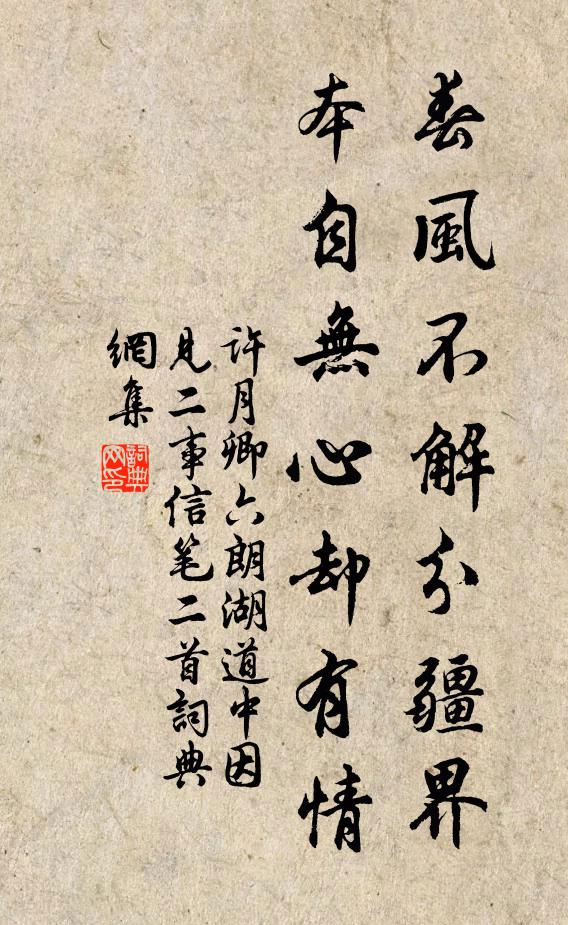 春風不解分疆界
本自無心却有情
許月卿六朗湖道中因
見二事信笔二首詞典
網集
詞典
网印